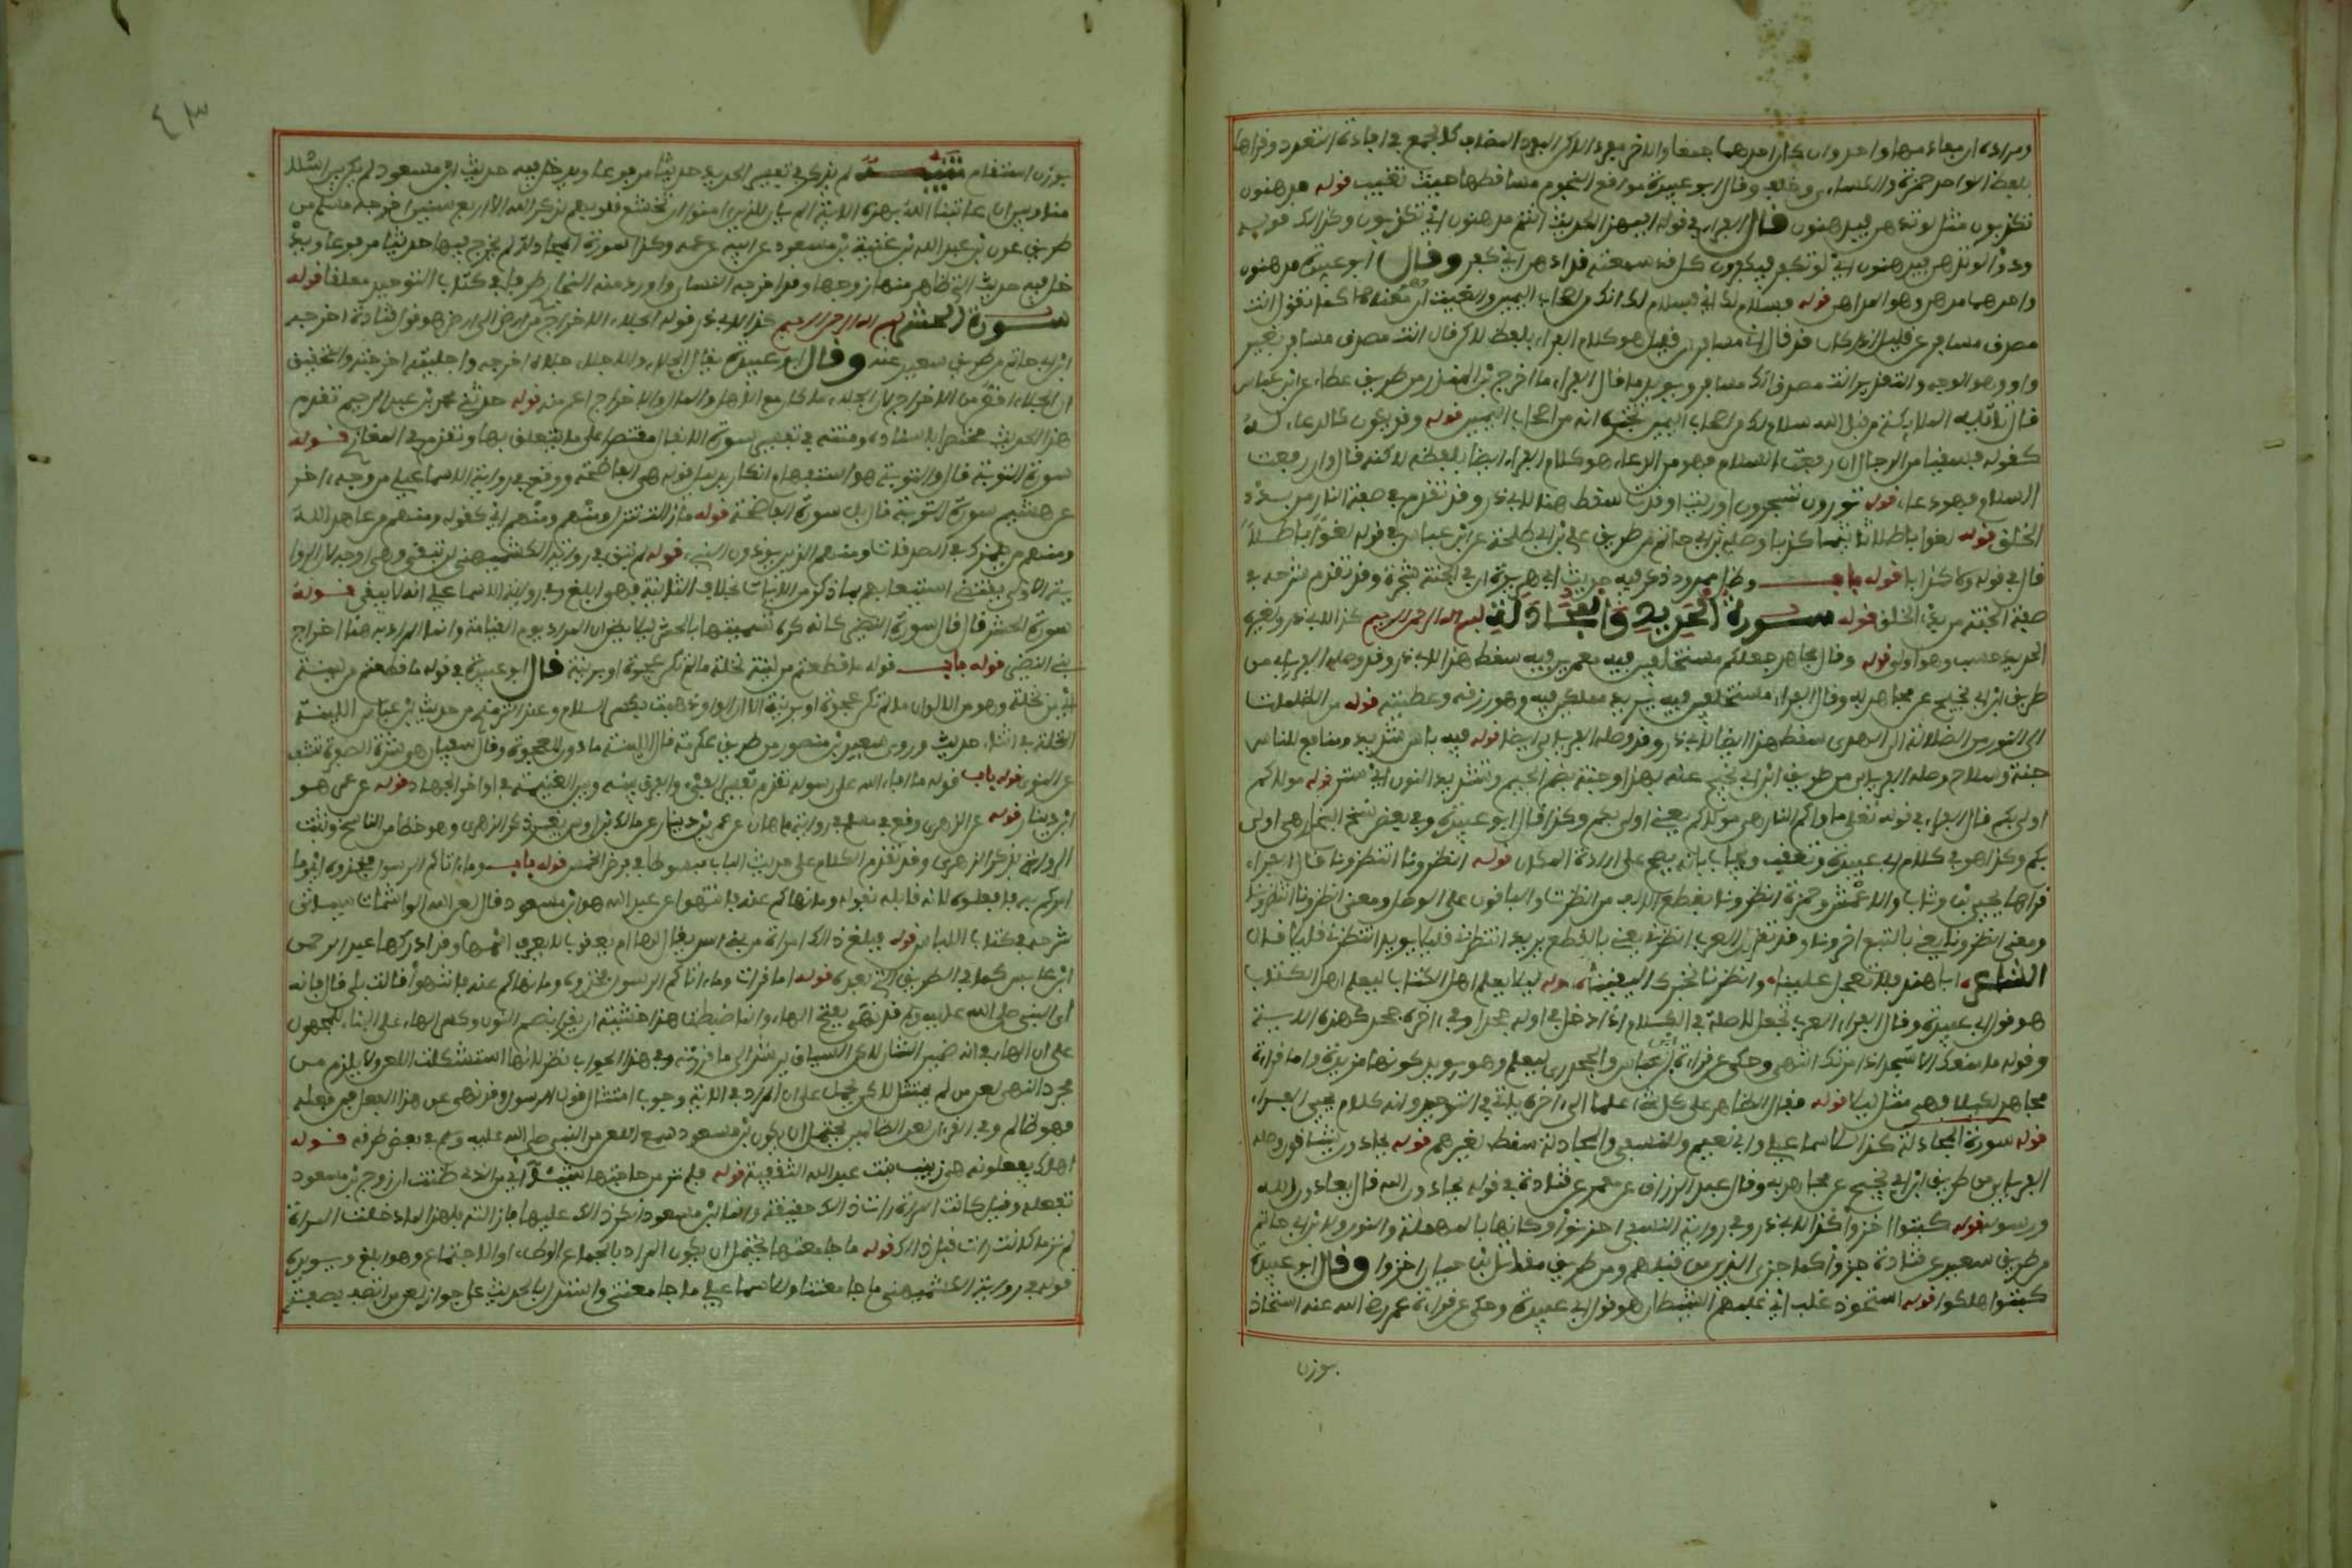 ومراده ان مفادهما واحد وان كان احدهما جمعا والاخر مفردا لكن المفرد المضاف كالجمع في افادة التعدد وقراها
بلفظ الواحد حمزة والكساءي وخلف وقال ابو عبيدة مواقع النجوم مساقطها حيث تغيب قوله مدهنون
تكذبون مثل لو تدهن فيدهنون قال الفراء في قوله افبهذا الحديث انتم مدهنون اي تكذبون وكذلك قوله
ودوا لو تدهن فيدهنون اي لو تكفر فيكفرون كل قد سمعته قد ادهن اي كفر وقال ابو عبيدة مدهنون
واحدها مدهن وهو المداهن قوله فسلام لك اي فسلام لك انك من اصحاب اليمين والغيت ان وهو معناها كما تقول انت
مصدق مسافر عن قليل اذا كان قد قال اني مسافر عن قليل هو كلام الفراء بلفظ لكن قال انت مصدق مسافر بغير
واو وهو الوجه والتقدير انت مصدق انك مسافر ويويد ما قال الفراء ما اخرج ابن المنذر من طريق عطاء عن ابن عباس
قال تاتيه الملايكة من قبل الله سلام لك من اصحاب اليمين تخبره انه من اصحاب اليمين قوله وقد يكون كالدعاء له
كقوله فسقيا من الرجال ان رفعت السلام فهو من الدعاء هو كلام الفراء ايضا بلفظه لكنه قال وان رفعت
السلام فهو دعاء قوله تورون تستخرجون اوريت اوقدت سقط هنا لابي ذر وقد تقدم في صفة النار من بدء
الخلق قوله لغوا باطلا تاثيما كذبا وصله ابن ابي حاتم من طريق علي بن ابي طلحة عن ابن عباس في قوله لغوا باطلا
قال في قوله ولا كذابا قوله باب وظل ممدود ذكر فيه حديث ابي هريرة ان في الجنة شجرة وقد تقدم شرحه في
صفة الجنة من بدء الخلق قوله سورة الحديد والمجادلة بسم الله الرحمن الرحيم كذا لابي ذر ولغيره
الحديد حسب وهو اولى قوله وقال مجاهد جعلكم مستخلفين فيه معمرين فيه سقط هذا لابي ذر وقد وصله الفريابي من
طريق ابن ابي نجيح عن مجاهد به وقال الفراء مستخلفين فيه يريد مملكين فيه وهو رزقه وعطيته قوله من الظلمات
الى النور من الضلالة الى الهدى سقط هذا ايضا لابي ذر وقد وصله الفريابي ايضا قوله فيه باس شديد ومنافع للناس
جنة وسلاح وصله الفريابي من طريق ابن ابي نجيح عنه بهذا وجنة بضم الجيم وتشديد النون اي ستر قوله مولاكم
اولى بكم قال الفراء في قوله تعلى ماواكم النار هي مولاكم يعني اولى بكم وكذا قال ابو عبيدة وفي بعض نسخ البخاري هي اولى
بكم وكذا هو في كلام ابي عبيدة وتعقب ويجاب بانه يصح على ارادة المكان قوله انظرونا انتظرونا قال الفراء
قراها يحيى بن وثاب والاعمش وحمزة انظرونا بقطع الالف من انظرت والباقون على الوصل ومعنى انظرونا انتظرونا
ومعنى انظرونا يعني بالقطع اخرونا وقد تقول العرب انظرني يعني بالقطع يريد انتظرني قليلا يويد انتظرني قليلا قال
الشاعر ابا هند فلا تعجل علينا وانظرنا نخبرك اليقينا قوله ليلا يعلم اهل الكتاب ليعلم اهل الكتاب
هو قول ابي عبيدة وقال الفراء العرب تجعل لا صلة في الكلام اذا دخل في اوله جحد او في اخره جحد كهذه الاية
وقوله ما منعك الا تسجد اذ امرتك انتهى وحكي عن قراءة ابن عباس والجحدري ليعلم وهو يويد كونها مزيدة واما قراءة
مجاهد لكيلا فهي مثل ليلا قوله يقال الظاهر على كل شيء علما الى اخره ياتي في التوحيد وانه كلام يحيى الفراء
قوله سورة المجادلة كذا للاسماعيلي وابي نعيم وللنسفي والمجادلة سقط لغيرهم قوله يحادون يشاقون وصله
الفريابي من طريق ابن ابي نجيح عن مجاهد به وقال عبد الرزاق عن معمر عن قتادة في قوله يحادون الله قال يعادون الله
ورسوله قوله كبتوا اخزوا كذا لابي ذر وفي رواية النسفي احزنوا وكانها بالمهملة والنون ولابن ابي حاتم
من طريق سعيد عن قتادة خزوا كما خزي الذين من قبلهم ومن طريق مقاتل بن حيان اخزوا وقال ابو عبيدة
كبتوا اهلكوا قوله استحوذ غلب اي غلبهم الشيطان هو قول ابي عبيدة وحكي عن قراءة عمر رضي الله عنه استحاذ
بوزن
٤٣
بوزن استقام تنبيه لم يذكر في تفسير الحديد حديثا مرفوعا ويدخل فيه حديث ابن مسعود لم يكن بين اسلا
منا وبين ان عاتبنا الله بهذه الاية الم يان للذين امنوا ان تخشع قلوبهم لذكر الله الا اربع سنين اخرجه مسلم من
طريق عون بن عبد الله بن عتبة بن مسعود عن ابيه عن عمه وكذا سورة المجادلة لم يخرج فيها حديثا مرفوعا ويد
خل فيه حديث التي ظاهر منها زوجها وقد اخرجه النساي واورد منه البخاري طرفا في كتاب التوحيد معلقا قوله
سورة الحشر بسم الله الرحمن الرحيم كذا لابي ذر قوله الجلاء الاخراج من ارض الى ارض هو قول قتادة اخرجه
ابن ابي حاتم من طريق سعيد عنه وقال ابو عبيدة يقال الجلاء والاجلاء جلاه اخرجه واجليته اخرجته والتحقيق
ان الجلاء اخص من الاخراج لان الجلاء ما كان مع الاهل والمال والاخراج اعم منه قوله حدثني محمد بن عبد الرحيم تقدم
هذا الحديث مختصرا باسناده ومتنه في تفسير سورة الانفال مقتصرا على ما يتعلق بها وتقدم في المغازي قوله
سورة التوبة قال والتوبة هو استفهام انكار بدليل قوله هي الفاضحة ووقع في رواية الاسماعيلي من وجه اخر
عن هشيم سورة التوبة قال بل سورة الفاضحة قوله ما زالت تنزل ومنهم ومنهم اي كقوله ومنهم من عاهد الله
ومنهم من يلمزك في الصدقات ومنهم الذين يوذون النبي قوله لم تبق في رواية الكشميهني لن تبقي وهي اوجه لان الروا
ية الاولى تقتضي استيعابهم بما ذكر من الايات بخلاف الثانية فهي ابلغ وفي رواية الاسماعيلي انه لا يبقى قوله
سورة الحشر قال قال سورة النضير كانه كره تسميتها بالحشر ليلا يظن ان المراد يوم القيامة وانما المراد به هنا اخراج
بني النضير قوله باب قوله ما قطعتم من لينة نخلة ما لم تكن عجوة او برنية قال ابو عبيدة في قوله ما قطعتم من لينة
اي من نخلة وهو من الالوان ما لم تكن عجوة او برنية الا ان الواو ذهبت بكسر اللام وعند الترمذي من حديث ابن عباس اللينة
النخلة في اثناء حديث وروى سعيد بن منصور من طريق عكرمة قال اللينة ما دون العجوة وقال سفيان هي شديدة الصفرة تنشق
عن النوى قوله باب قوله ما افاء الله على رسوله تقدم تفسير الفيء والفرق بينه وبين الغنيمة في اواخر الجهاد قوله عن عمرو هو
ابن دينار قوله عن الزهري وقع في مسلم في رواية ماهان عن عمرو بن دينار عن مالك بن اوس بغير ذكر الزهري وهو خطا من الناسخ وثبت
الرواية بذكر الزهري وقد تقدم الكلام على حديث الباب مبسوطا في فرض الخمس قوله باب وما اتاكم الرسول فخذوه اي وما
امركم به فافعلوه لانه قابله بقوله وما نهاكم عنه فانتهوا عن عبد الله هو ابن مسعود قال لعن الله الواشمات سياتي
شرحه في كتاب اللباس قوله فبلغ ذلك امراة من بني اسد يقال لها ام يعقوب لا يعرف اسمها وقد ادركها عبد الرحمن
ابن عابس كما في الطريق التي بعده قوله اما قرات وما اتاكم الرسول فخذوه وما نهاكم عنه فانتهوا قالت بلى قال فانه
اي النبي صلى الله عليه وسلم قد نهى بفتح الهاء وانما ضبطنا هذا خشية ان يقرا بضم النون وكسر الهاء على البناء للمجهول
على ان الهاء في انه ضمير الشان لكن السياق يرشد الى ما قررته وفي هذا الجواب نظر لانها استشكلت اللعن ولا يلزم من
مجرد النهي لعن من لم يمتثل لكن يحمل على ان المراد في الاية وجوب امتثال قول الرسول وقد نهى عن هذا الفعل فمن فعله
فهو ظالم وفي القرءان لعن الظالمين يحتمل ان يكون بن مسعود سمع اللعن من النبي صلى الله عليه وسلم كما في بعض طرقه قوله
اهلك يفعلونه هي زينب بنت عبد الله الثقفية قوله فلم تر من حاجتها شيئا اي من الذي ظنت ان زوج بن مسعود
تفعله وقيل كانت المراة رات ذلك حقيقة وانما ابن مسعود انكر ذلك عليها فازالته فلهذا لما دخلت المراة
لم تر ما كانت رات قبل ذلك قوله ما جامعتها يحتمل ان يكون المراد بالجماع الوطء او الاجتماع وهو ابلغ ويويده
قوله في رواية الكشميهني ما جامعتنا وللاسماعيلي ما جامعتني واستدل بالحديث على جواز لعن من اتصف بصفة